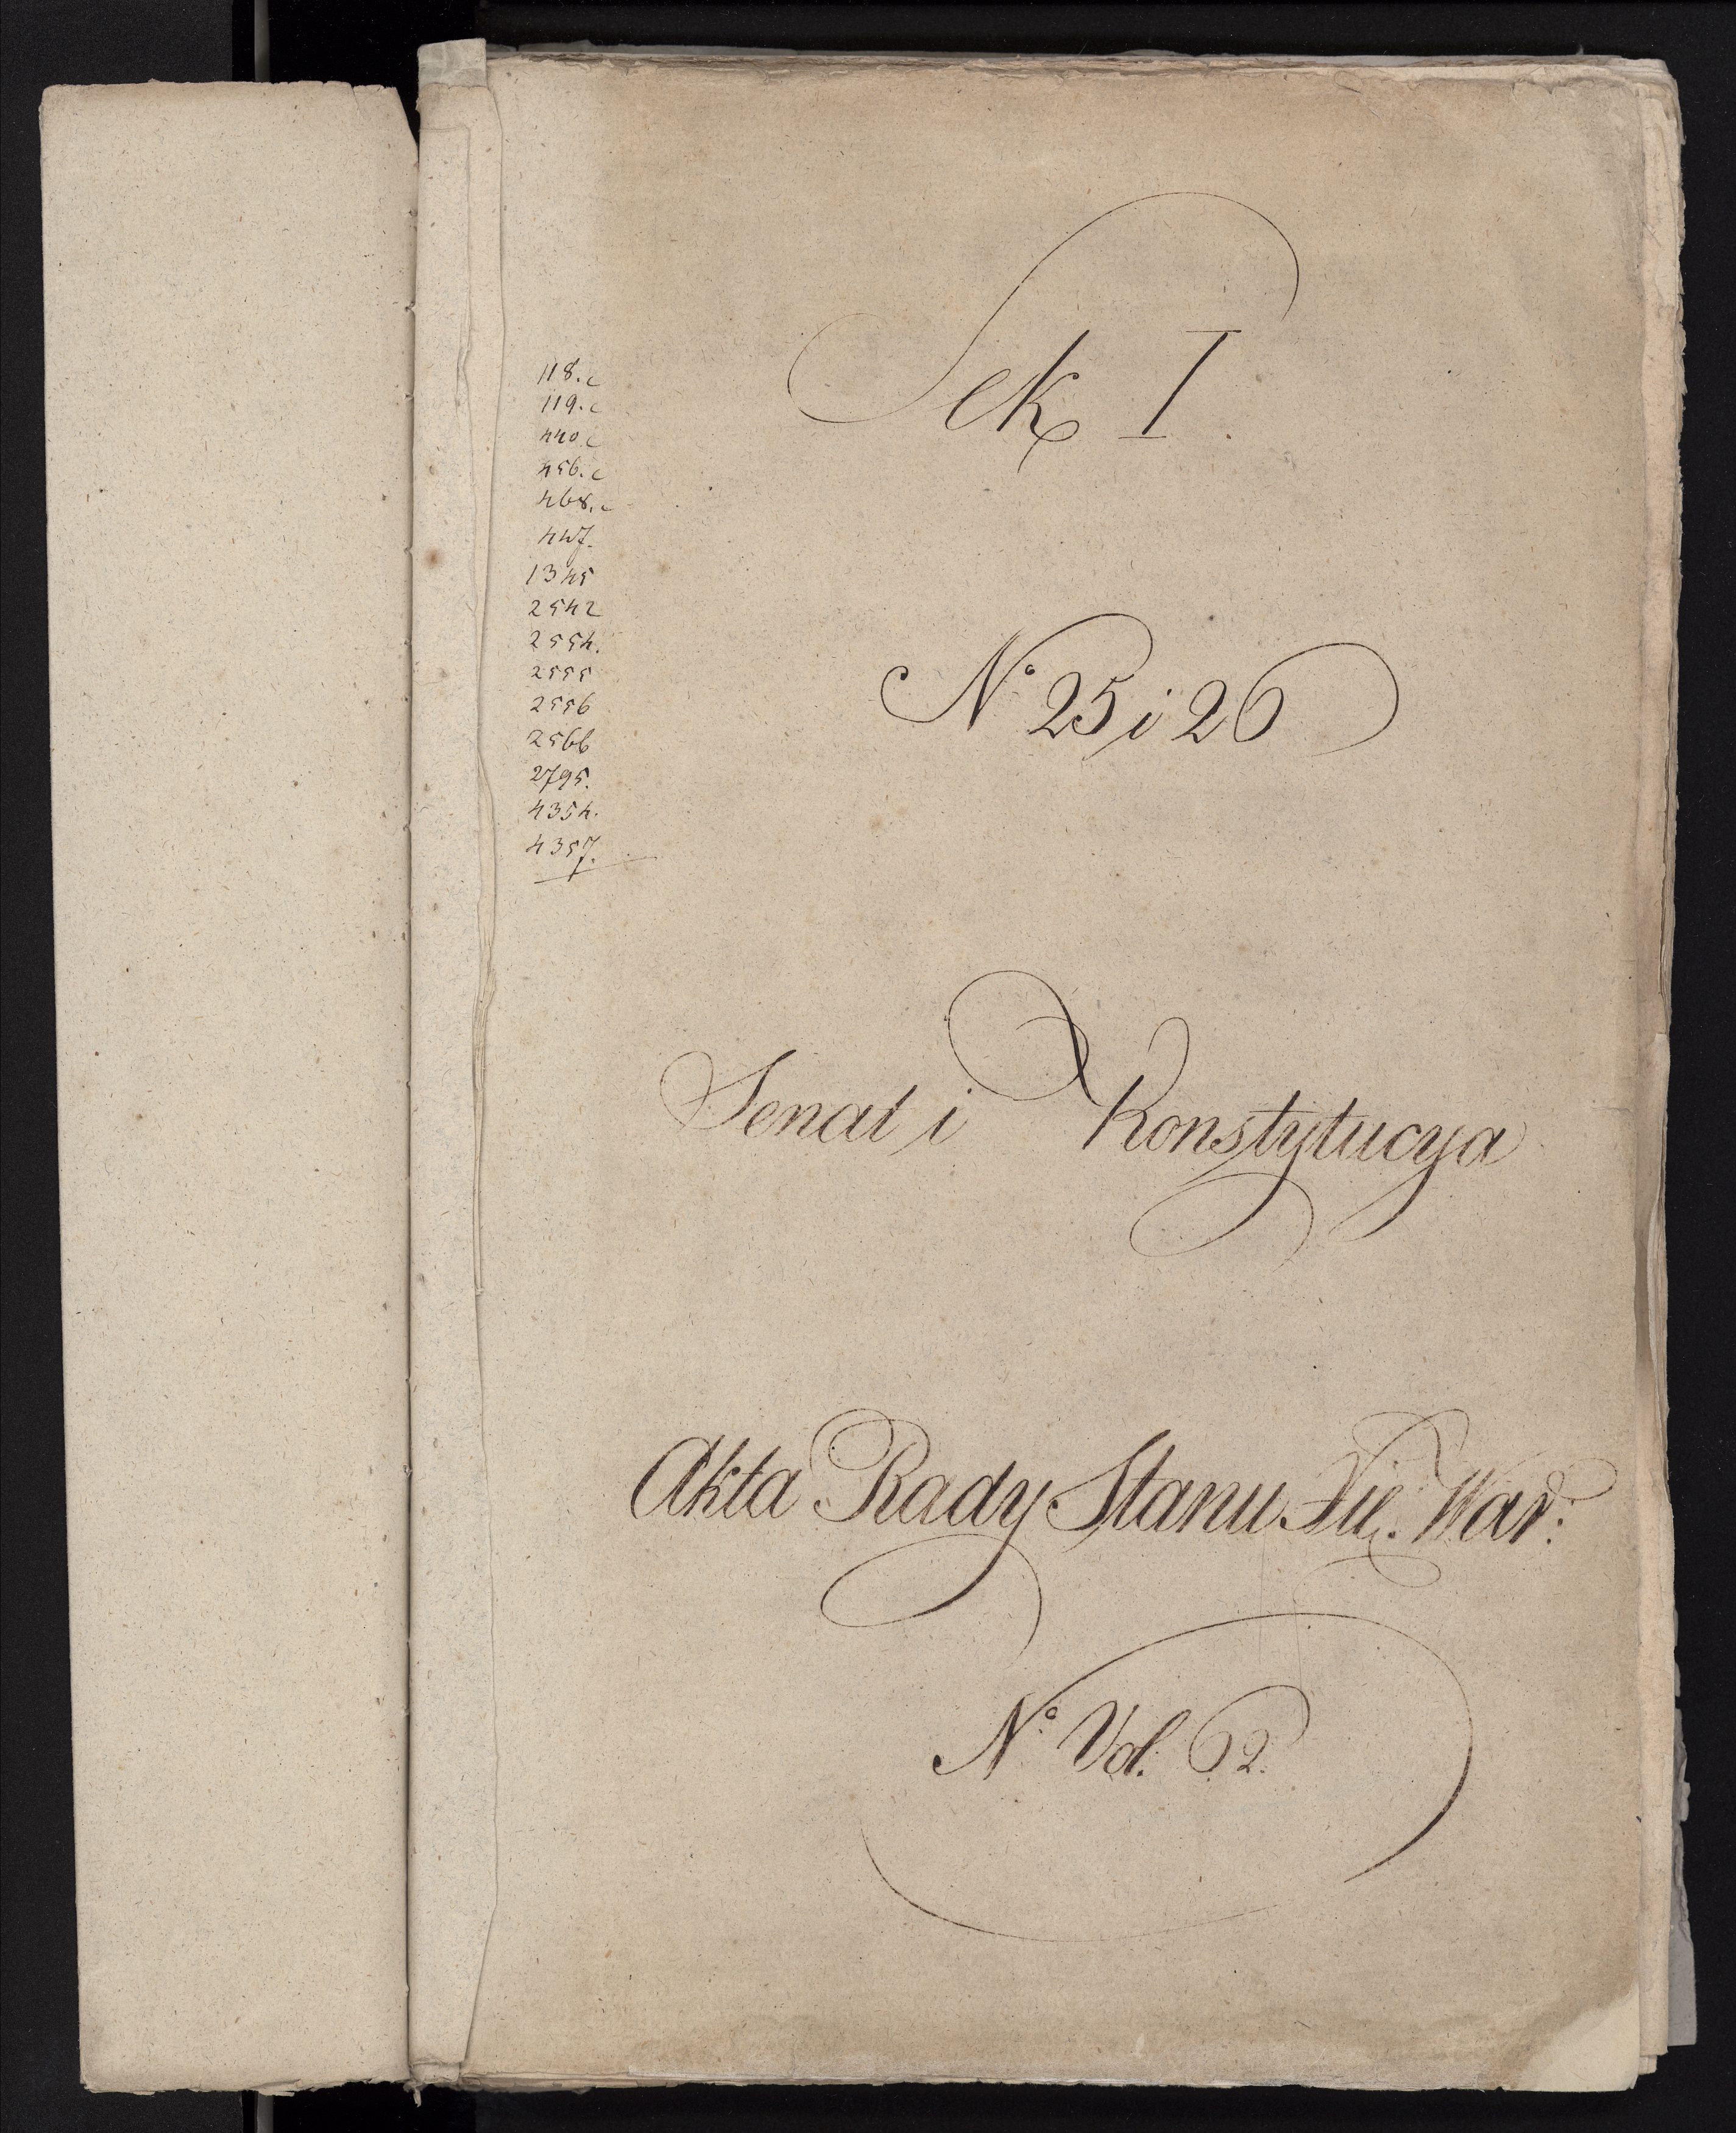 Sek I.
118. c
119. c
440 c
456. c
468. c
447.
1345
2542
2554.
2555
2556
2566
2795.
4354.
4357.
No 25 i 26
Senat i Konstytucya
Akta Rady Stanu Xię. War:
No. Vol. 62.